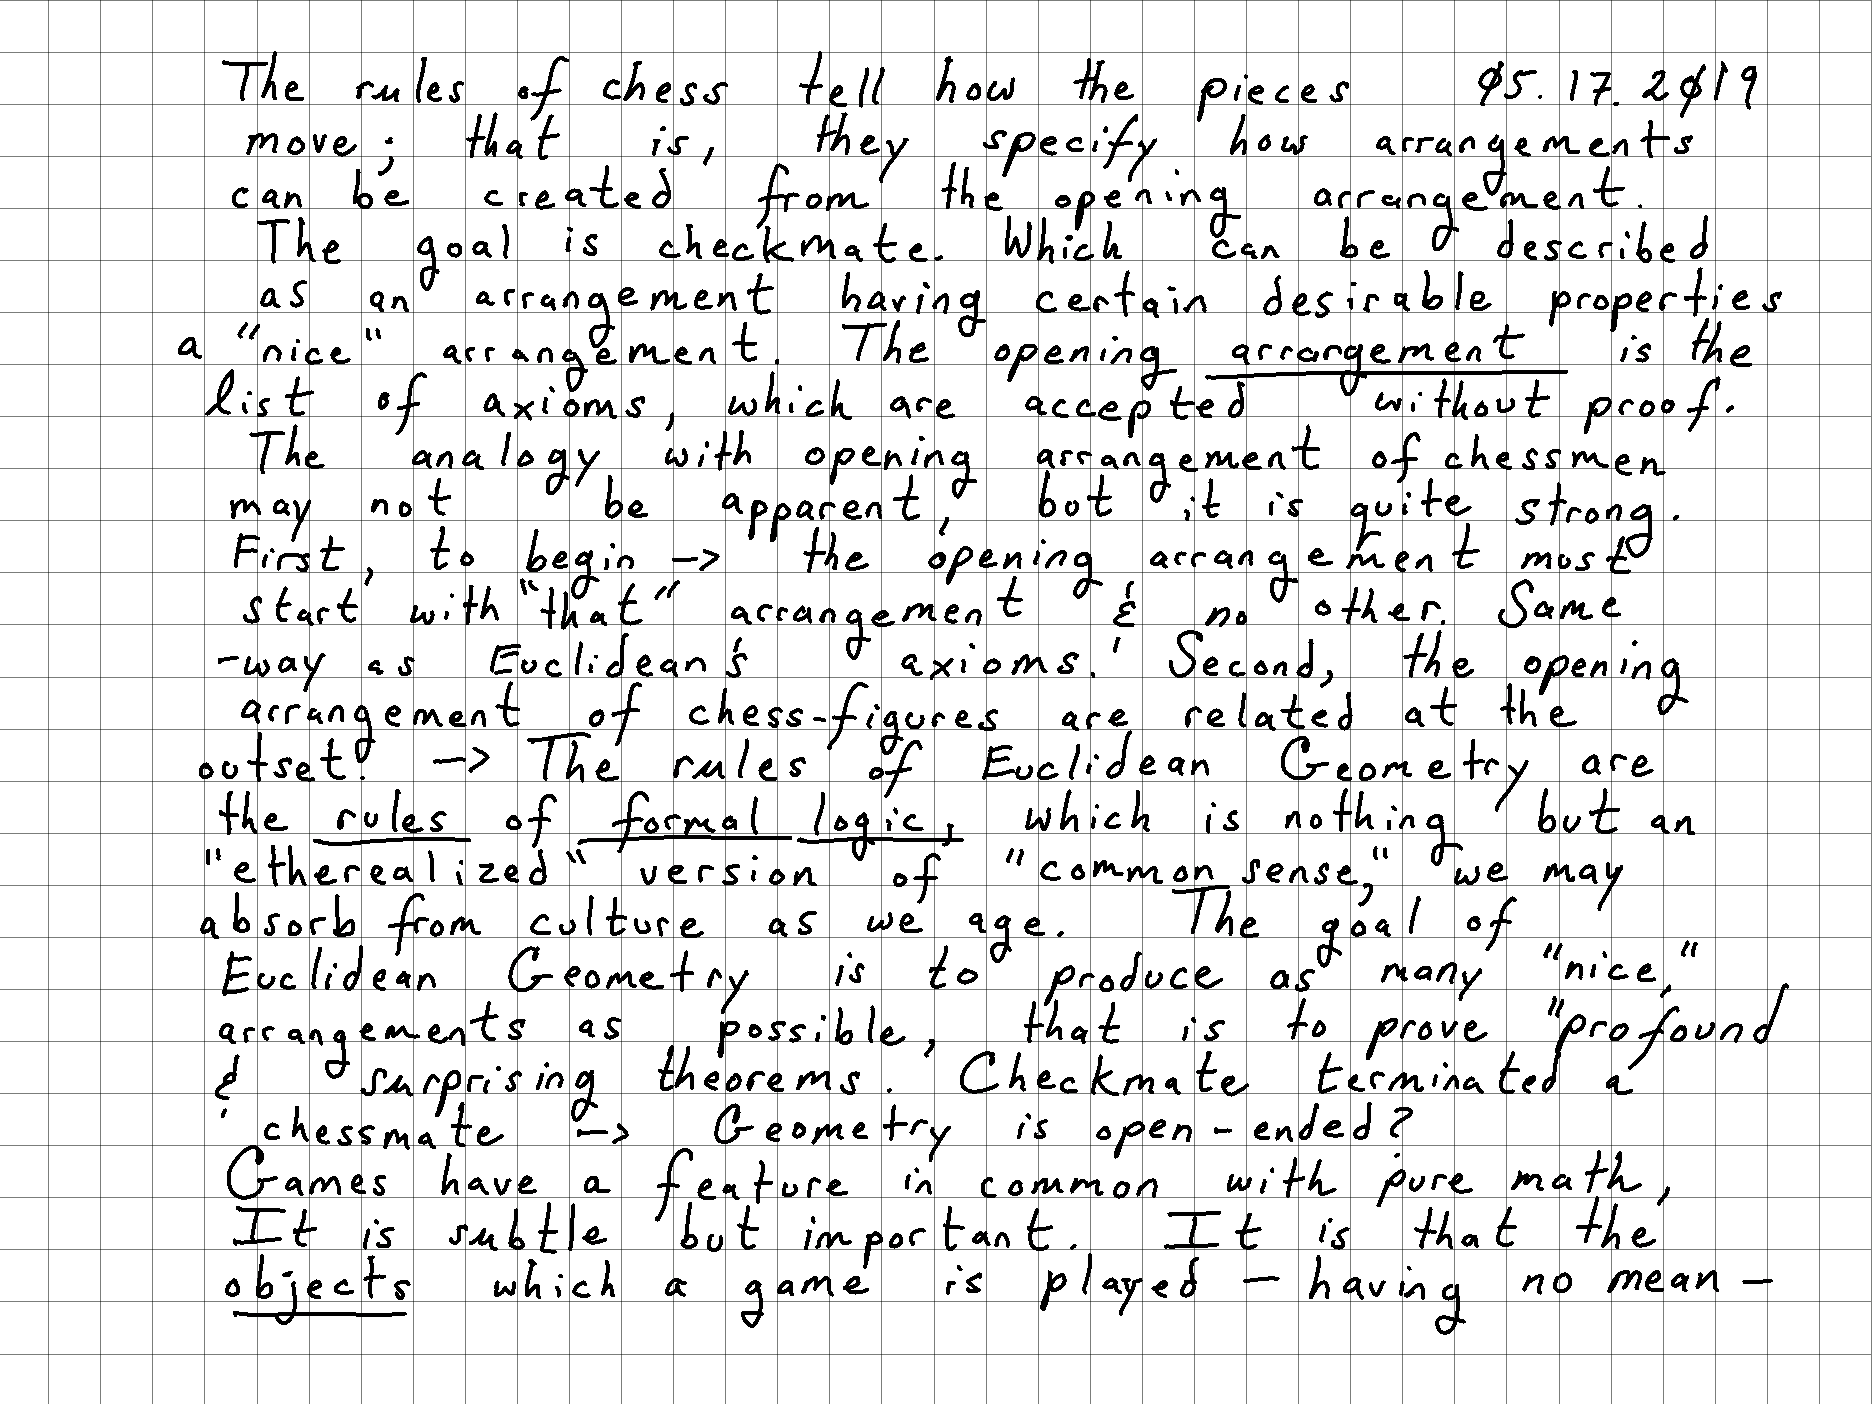 The rules of chess tell how the pieces 05.17.2019
move; that is, they specify how arrangements
can be created from the opening arrangement.
The goal is checkmate. Which can be described
as an arrangement having certain desirable properties
a "nice" arrangement. The opening arrangement is the
list of axioms, which are accepted without proof.
The analogy with opening arrangement of chessmen
may not be apparent, but it is quite strong.
First, to begin -> the opening arrangement most
start with "that" arrangement & no other. Same
-way as Euclidean's axioms. Second, the opening
arrangement of chess-figures are related at the
outset. -> The rules of Euclidean Geometry are
the rules of formal logic, which is nothing but an
"etherealized" version of "common sense," we may
absorb from culture as we age. The goal of
Euclidean Geometry is to produce as many "nice,"
arrangements as possible, that is to prove "profound
& surprising theorems. Checkmate terminated a
chessmate -> Geometry is open-ended?
Games have a feature in common with pure math,
It is subtle but important. It is that the
objects which a game is played - having no mean-